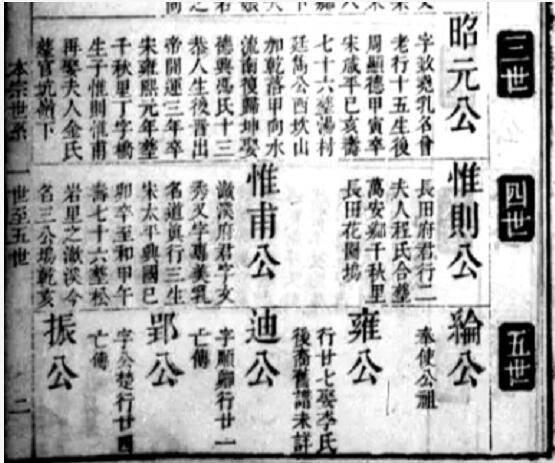 三世
昭元公
字敬堯乳名曾
老行十五生後
周顯德甲寅卒
宋咸平己亥壽
七十六塟湯村
廷嵩公酉坎山
加乾落甲向水
流南復歸坤娶
德興馮氏十三
恭人生後晉出
帝開運三年卒
宋雍熙元年塟
千秋里丁字橋
生子惟則惟甫
再娶夫人金氏
塟官坑嶺下
四世
惟則公
長田府君行二
夫人程氏合塟
萬安鄉千秋里
長田花園塢
惟甫公
澉溪府君字文
秀又字專美乳
名道真行三生
宋太平興國己
卯卒至和甲午
壽七十六塟松
岩里之澉溪今
名三公塢乾亥
五世
綸公
奉使公祖
雍公
行廿七娶李氏
後裔舊譜未詳
迪公
字順卿行廿一
亡傳
郢公
字公楚行廿四
亡傳
振公
本宗世系
一世至五世
二